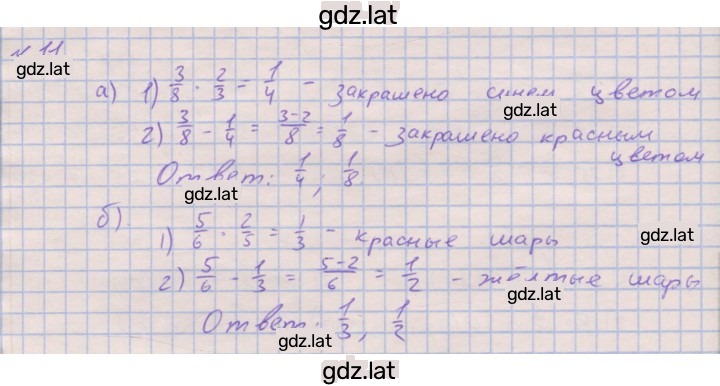 gdz.lat
№ 11
gdz.lat
а) 1) 3/8 · 2/3 = 1/4 - закрашено синем цветом
gdz.lat
2) 3/8 - 1/4 = 3-2/8 = 1/8 - закрашено красным
цветом
gdz.lat
Ответ: 1/4; 1/8.
gdz.lat
б).
1) 5/6 · 2/5 = 1/3 - красные шары
gdz.lat
2) 5/6 - 1/3 = 5-2/6 = 1/2 - жёлтые шары
gdz.lat
Ответ: 1/3, 1/2
gdz.lat
gdz.lat